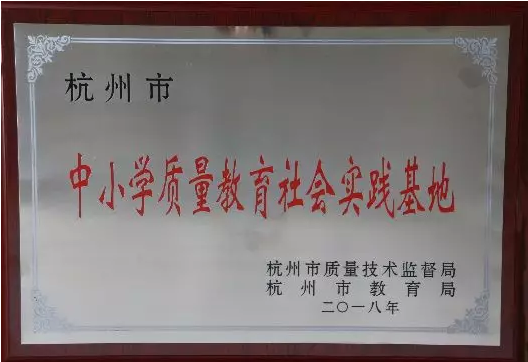 杭州市
中小学质量教育社会实践基地
杭州市质量技术监督局
杭州市教育局
二〇一八年